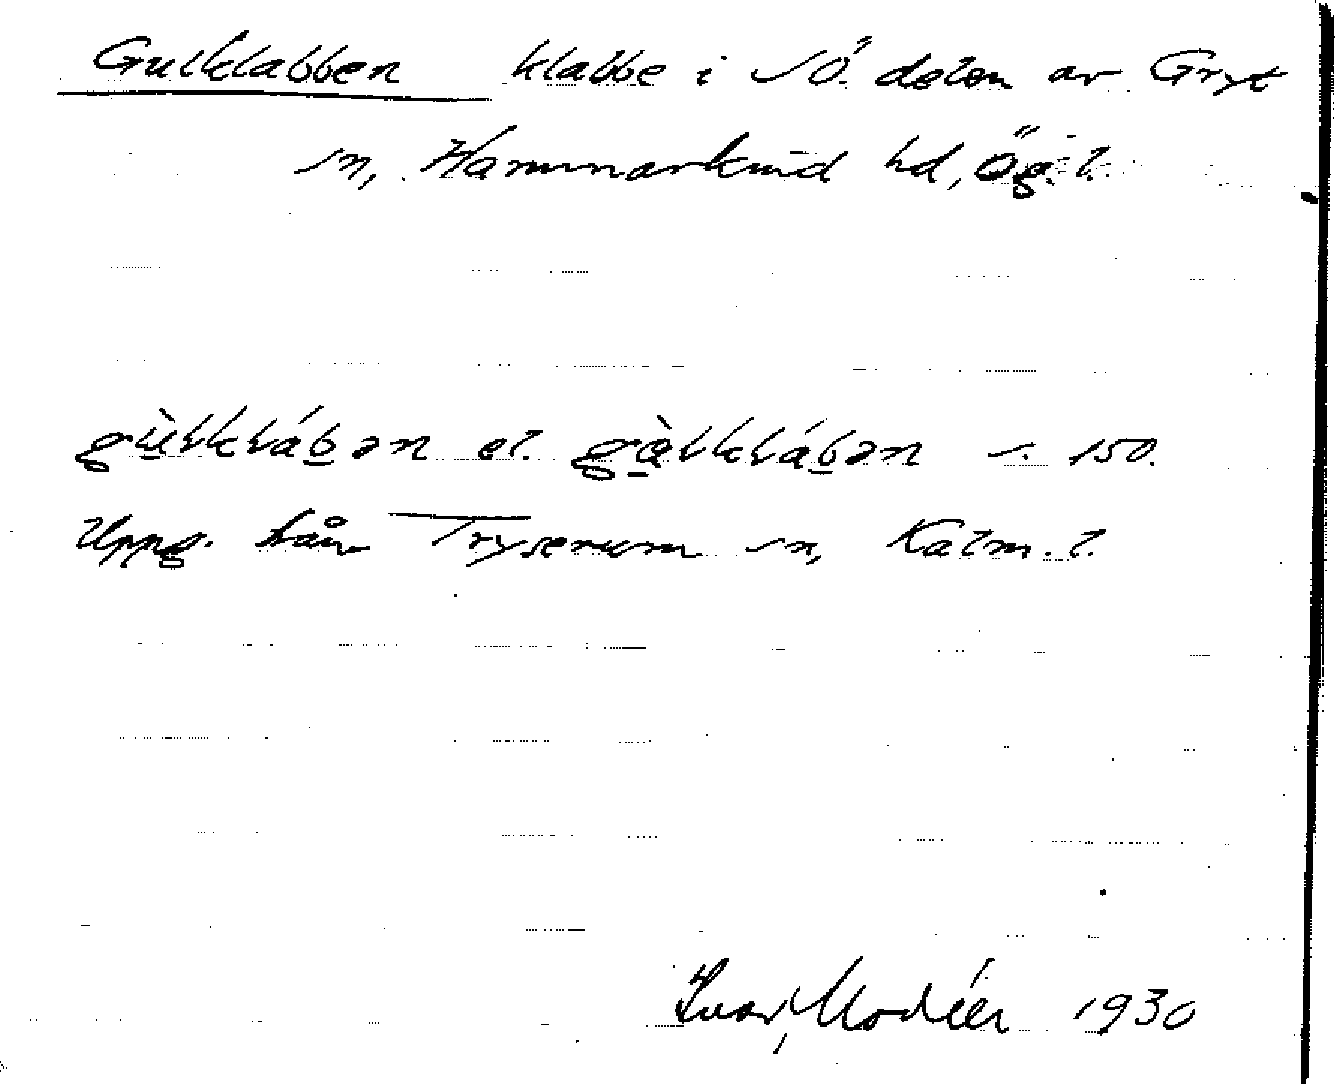 Gulklabben klabbe i SÖ. delen av Gryt
sn, Hammarkind hd, Ög. l.
gù̱lklábḇən el. gò̱lklábḇən s. 150.
Uppg. från Tryserum sn, Kalm. l.
Ivar Modéer 1930